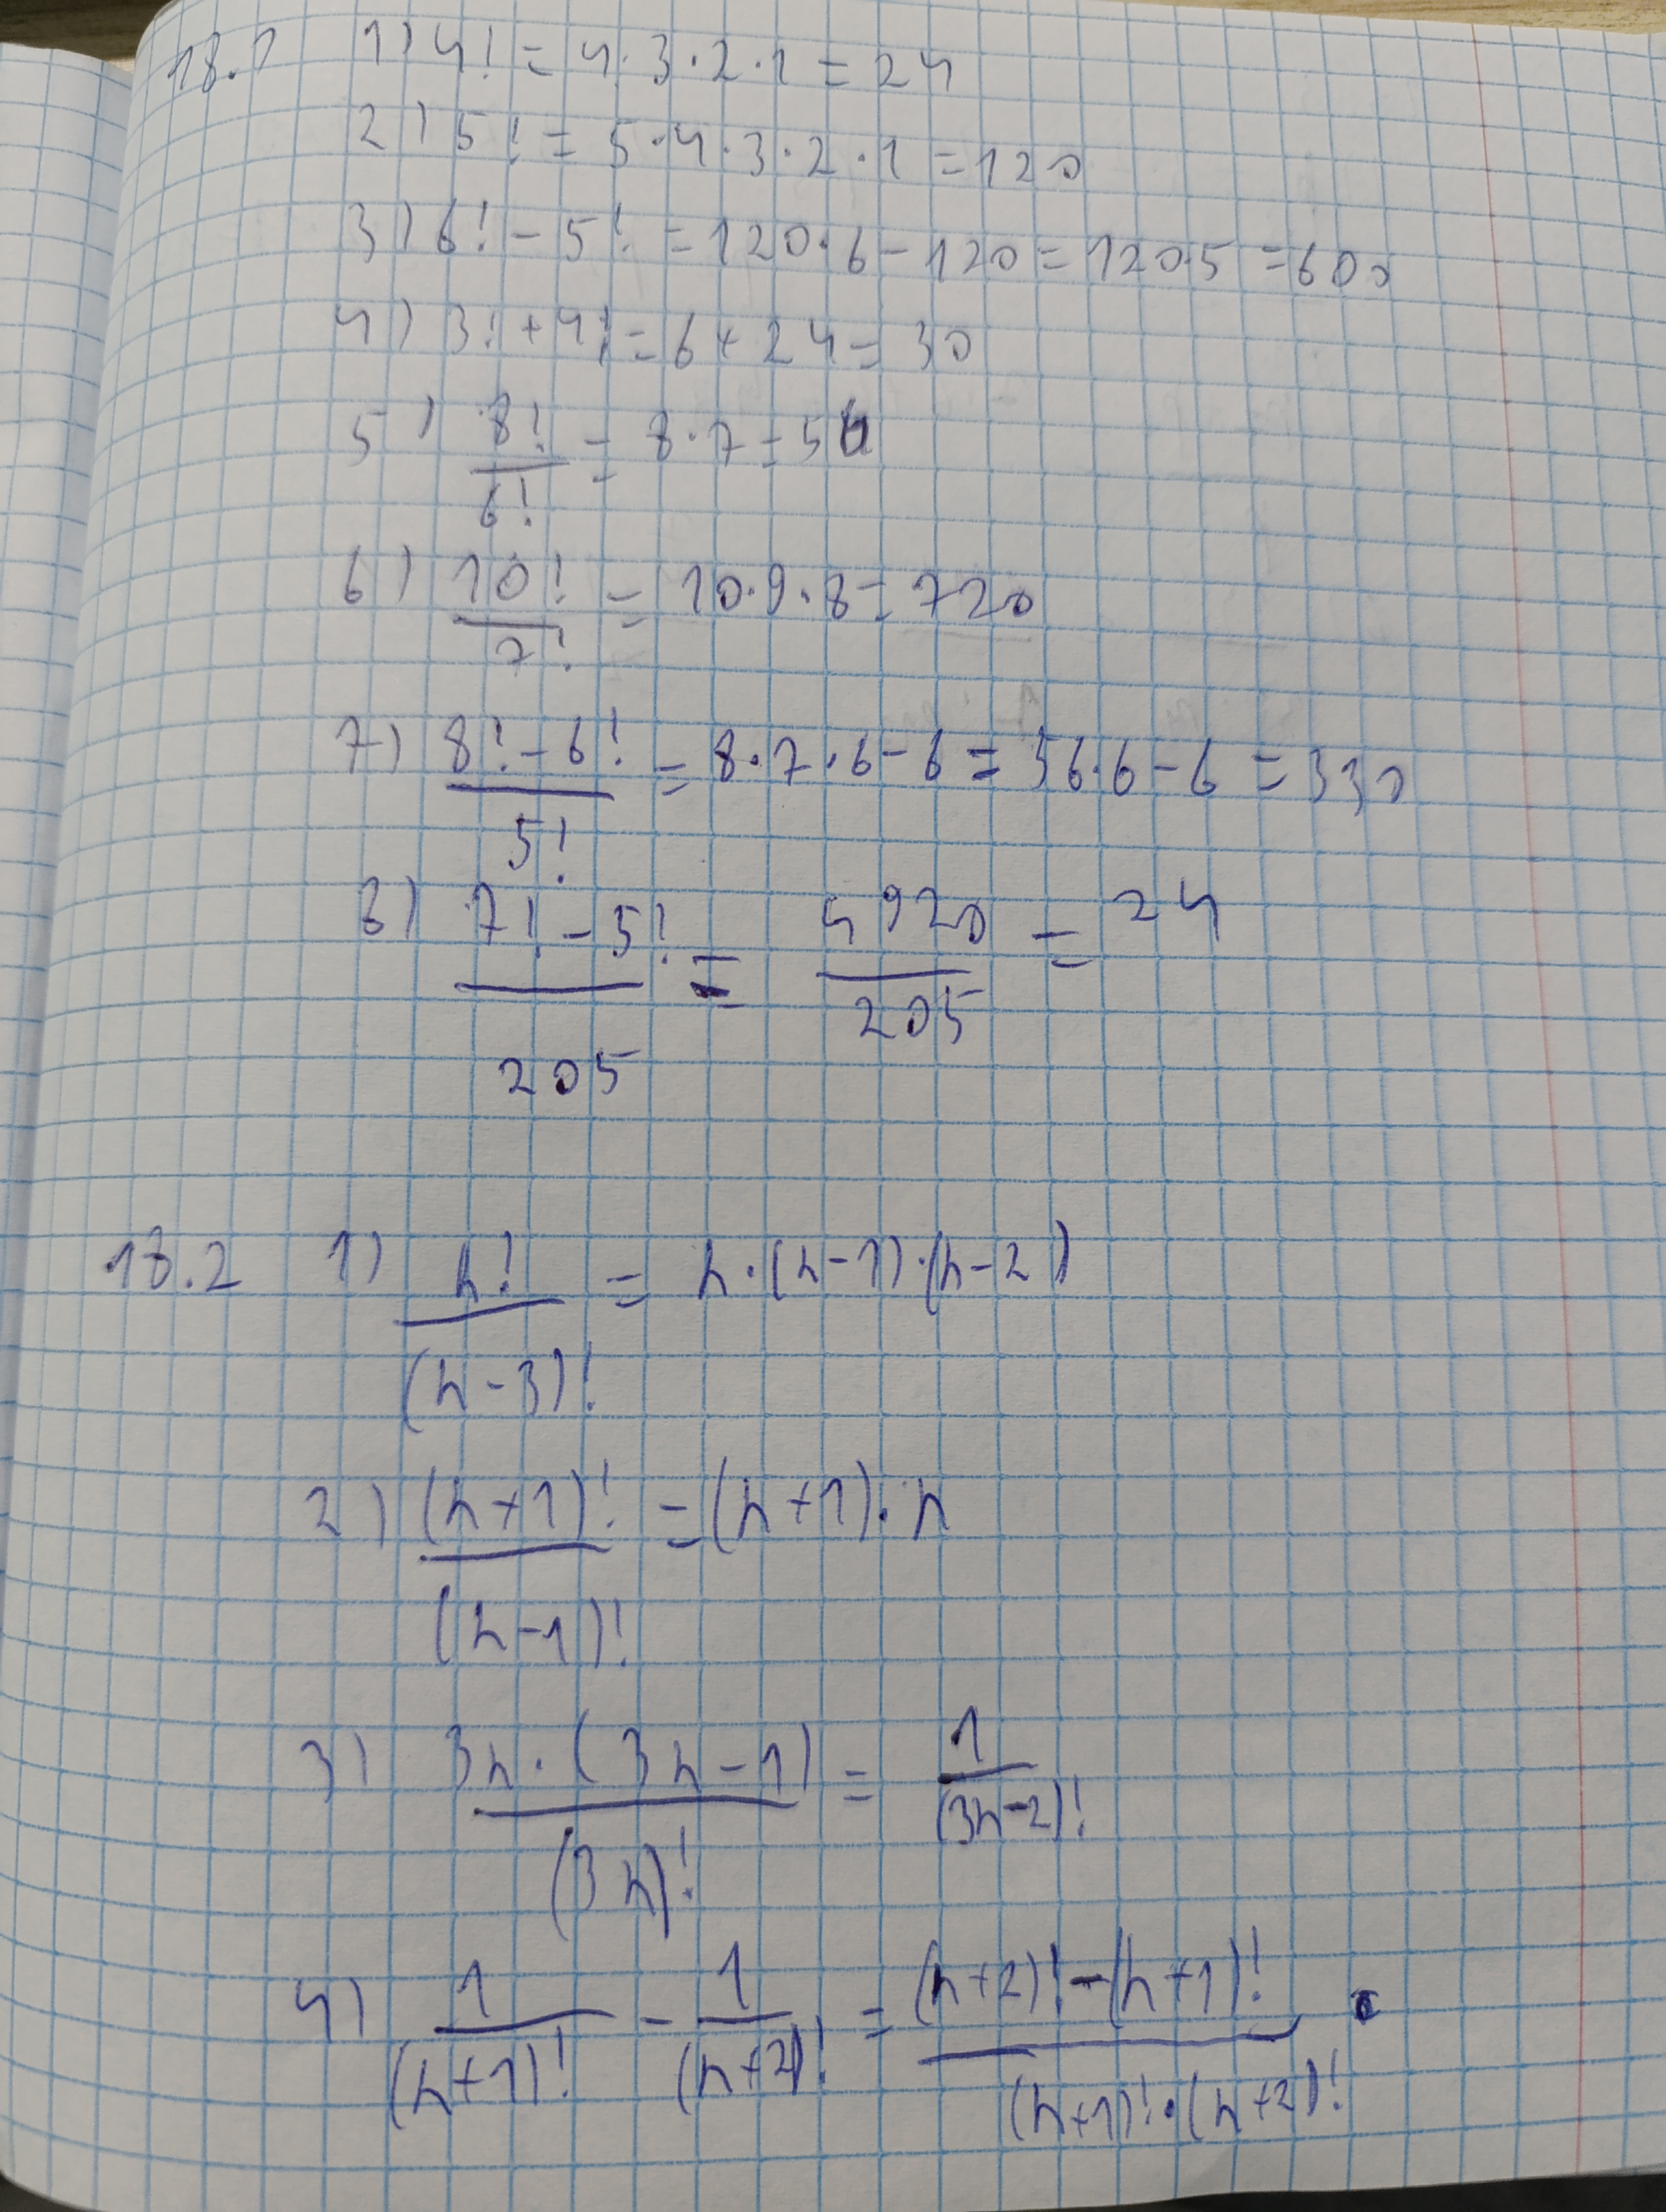 18.1 1) 4! = 4·3·2·1 = 24
2) 5! = 5·4·3·2·1 = 120
3) 6! - 5! = 120·6 - 120 = 120·5 = 600
4) 3! + 4! = 6 + 24 = 30
5) 8!/6! = 8·7 = 56
6) 10!/7! = 10·9·8 = 720
7) (8! - 6!)/5! = 8·7·6 - 6 = 56·6 - 6 = 330
8) (7! - 5!)/205 = 4920/205 = 24
18.2 1) n!/(n-3)! = n·(n-1)·(n-2)
2) (n+1)!/(n-1)! = (n+1)·n
3) 3n·(3n-1)/(3n)! = 1/(3n-2)!
4) 1/(n+1)! - 1/(n+2)! = ((n+2)! - (n+1)!)/((n+1)!·(n+2)!)